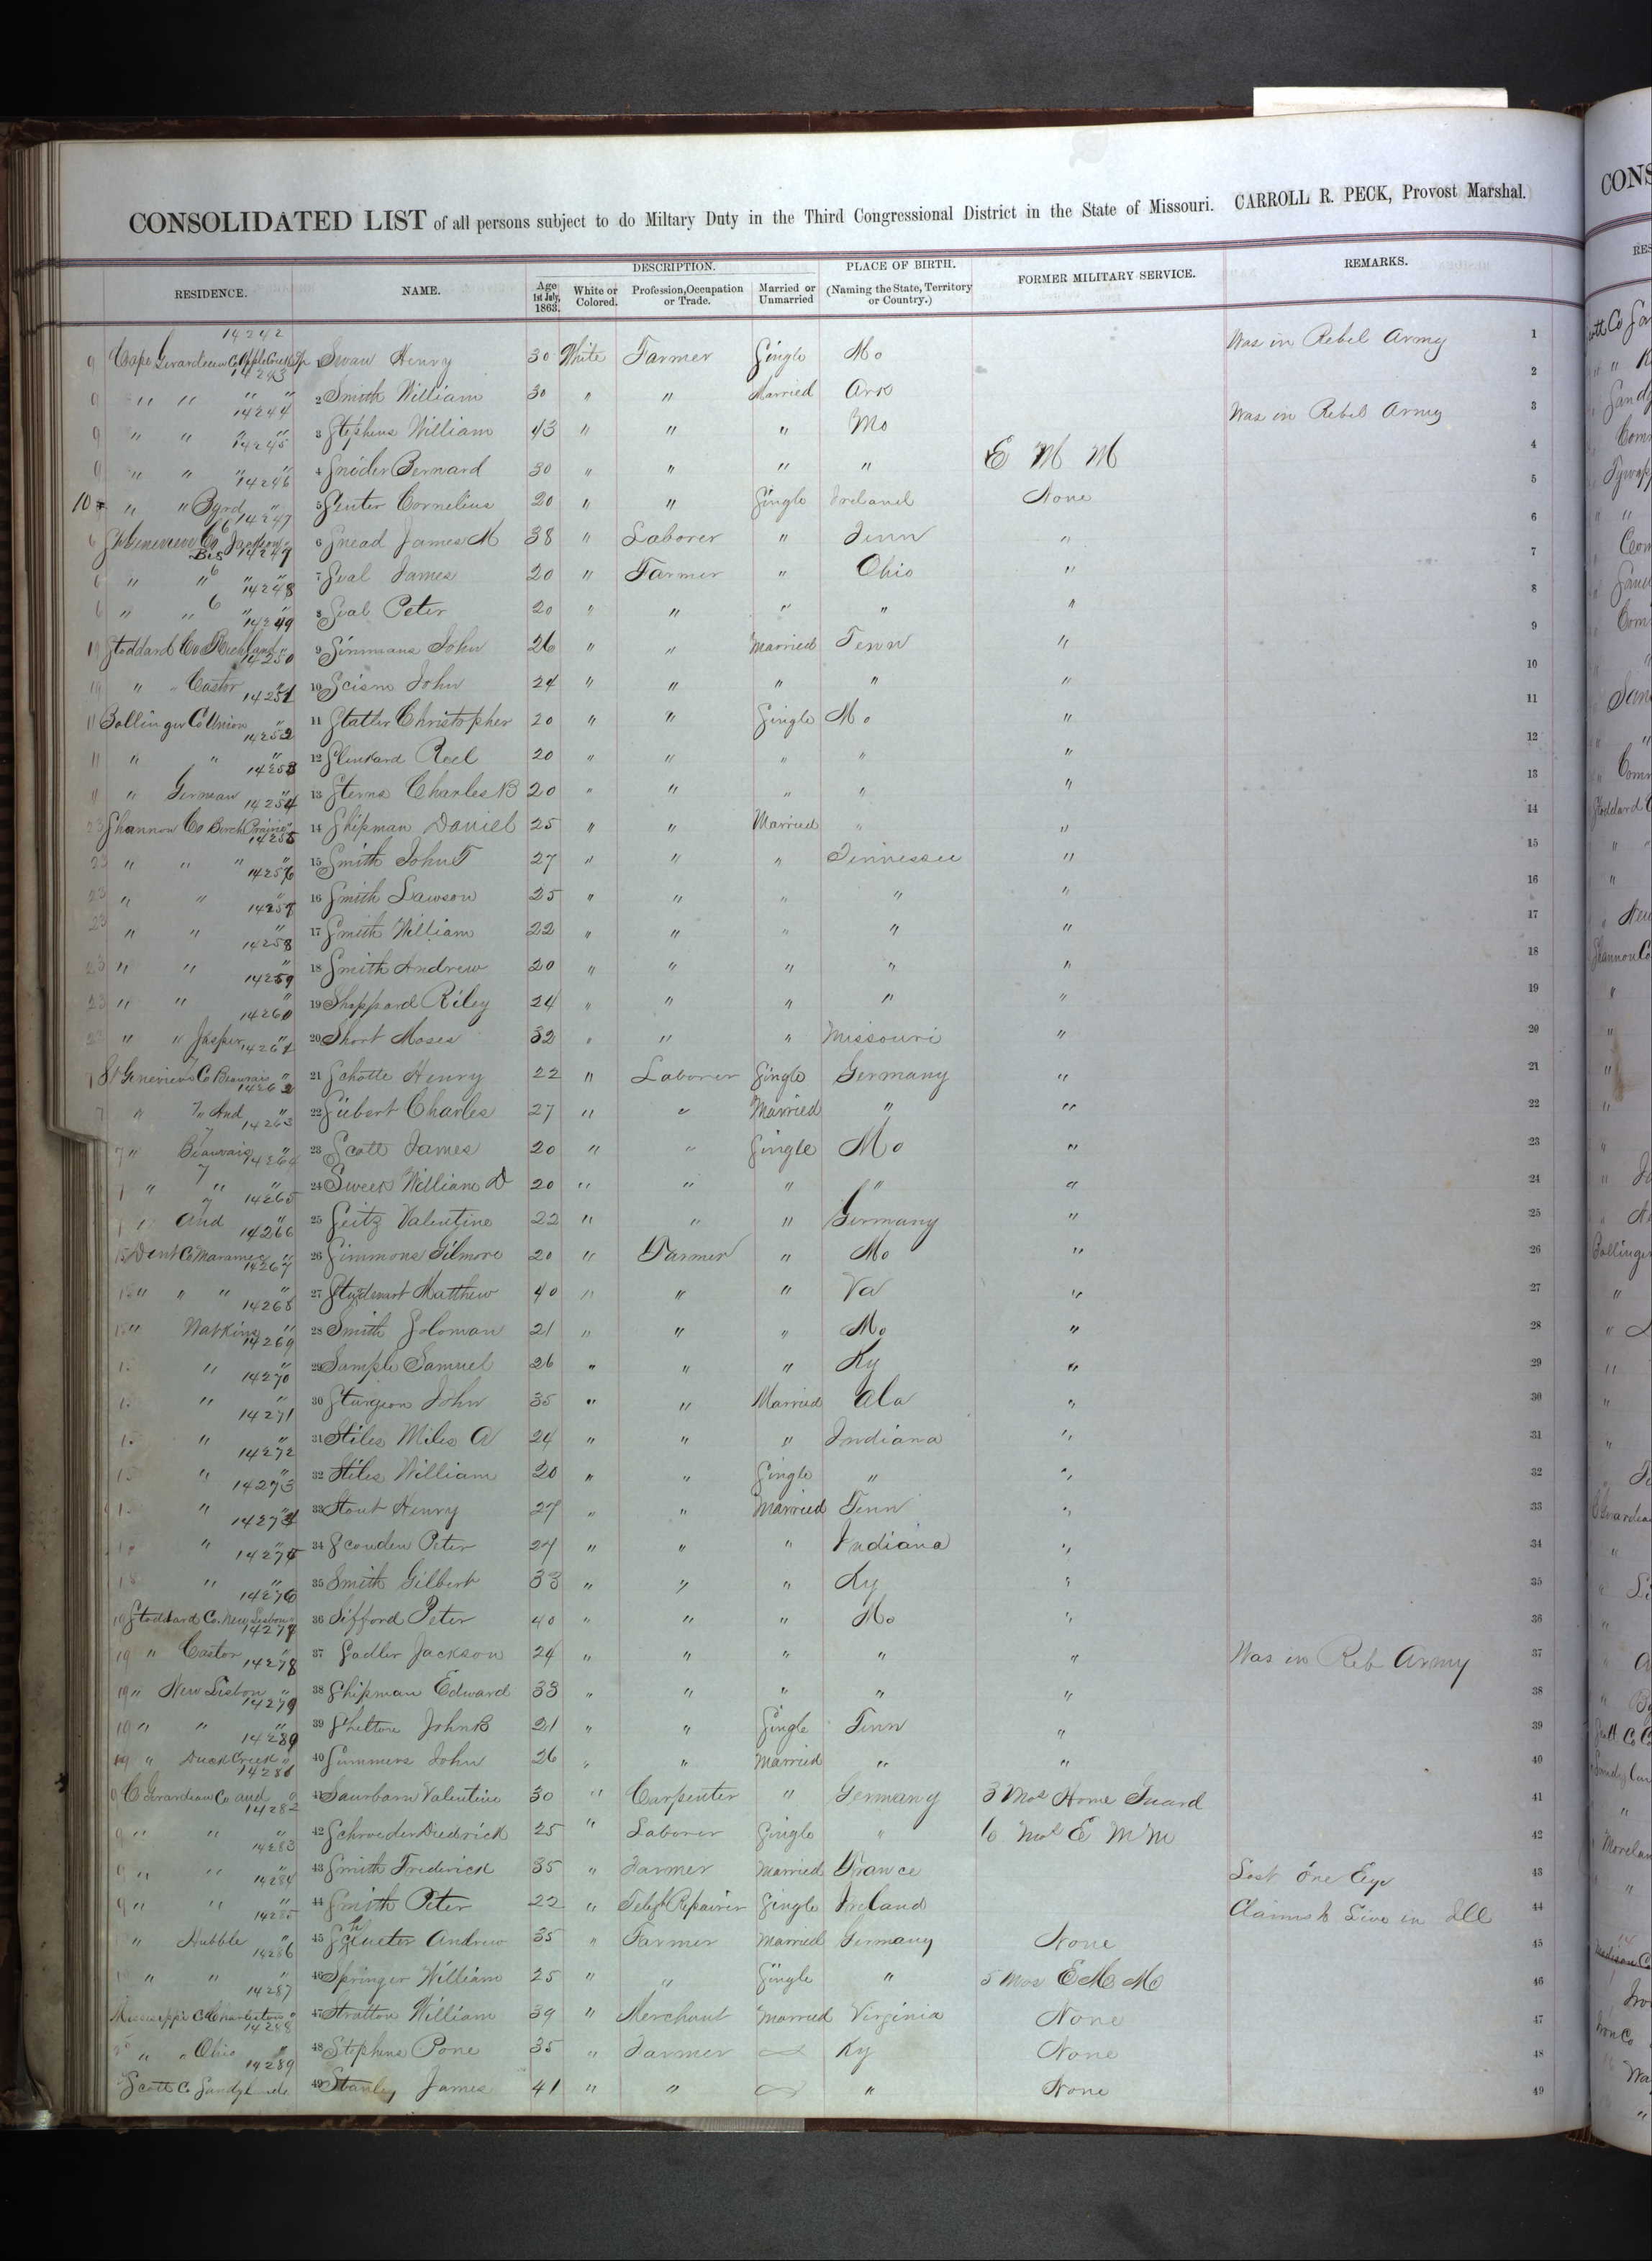 CONSOLIDATED LIST of all persons subject to do Miltary Duty in the Third Congressional District in the State of Missouri. CARROLL R. PECK, Provost Marshal.
DESCRIPTION. PLACE OF BIRTH.
RESIDENCE. NAME. Age 1st July, 1863. White or Colored. Profession, Occupation or Trade. Married or Unmarried (Naming the State, Territory or Country.) FORMER MILITARY SERVICE. REMARKS.
14242
9 Cape Girardeau Co Apple Creek Tp 1 Swan Henry 30 White Farmer Single Mo Was in Rebel Army 1
14243
9 " " " " 2 Smith William 30 " " Married Ark 2
14244
9 " " " " 3 Stephens William 43 " " " Mo Was in Rebel Army 3
14245
9 " " " " 4 Snider Bernard 30 " " " " E M M 4
14246
10 " " Byrd " 5 Senter Cornelius 20 " " Single Ireland None 5
14247
6 St Genevieve Co Jackson " 6 Snead James M 38 " Laborer " Tenn " 6
Bis 14247
6 " " " " 7 Seal James 20 " Farmer " Ohio " 7
14248
6 " " " " 8 Seal Peter 20 " " " " " 8
14249
19 Stoddard Co Richland " 9 Simmans John 26 " " Married Tenn " 9
14250
19 " " Castor " 10 Scism John 24 " " " " " 10
14251
11 Bollinger Co Union " 11 Statler Christopher 20 " " Single Mo " 11
14252
11 " " " 12 Slinkard Reel 20 " " " " " 12
14253
11 " German " 13 Sterns Charles B 20 " " " " " 13
14254
23 Shannon Co Birch Prairie " 14 Shipman Daniel 25 " " Married " " 14
14255
23 " " " " 15 Smith John T 27 " " " Tennessee " 15
14256
23 " " " 16 Smith Lawson 25 " " " " " 16
14257
23 " " " 17 Smith William 22 " " " " " 17
14258
23 " " " 18 Smith Andrew 20 " " " " " 18
14259
23 " " " 19 Sheppard Riley 24 " " " " " 19
14260
23 " " Jasper " 20 Short Moses 32 " " " Missouri " 20
14261
7 St Genevieve Co Beauvais " 21 Schotte Henry 22 " Laborer Single Germany " 21
14262
7 " 7 " And " 22 Siebert Charles 27 " " Married " " 22
14263
7 " Beauvais " 23 Scott James 20 " " Single Mo " 23
14264
7 " " " 24 Sweek William D 20 " " " " " 24
14265
7 " And " 25 Seitz Valentine 22 " " " Germany " 25
14266
15 Dent Co Maramec " 26 Simmons Gilmore 20 " Farmer " Mo " 26
14267
15 " " " " 27 Studevant Matthew 40 " " " Va " 27
14268
15 " Watkins " 28 Smith Soloman 21 " " " Mo " 28
14269
15 " " 29 Sample Samuel 26 " " " Ky " 29
14270
15 " " 30 Sturgeon John 35 " " Married Ala " 30
14271
15 " " 31 Stiles Miles A 24 " " " Indiana " 31
14272
15 " " 32 Stiles William 20 " " Single " " 32
14273
15 " " 33 Stout Henry 27 " " Married Tenn " 33
14274
15 " 34 Scouden Peter 27 " " " Indiana " 34
14275
15 " " 35 Smith Gilbert 33 " " " Ky " 35
14276
19 Stoddard Co. New Lisbon " 36 Sifford Peter 40 " " " Mo " 36
14277
19 " Castor " 37 Sadler Jackson 24 " " " " " Was in Reb Army 37
14278
19 " New Lisbon " 38 Shipman Edward 33 " " " " " 38
14279
19 " " " 39 Shelton John B 21 " " Single Tenn " 39
14280
19 " Duck Creek " 40 Summers John 26 " " Married " " 40
14281
9 C Girardeau Co and " 41 Saurbarn Valentine 30 " Carpenter " Germany 3 Mos Home Guard 41
14282
9 " " " 42 Schroeder Diedrick 25 " Laborer Single " 6 Mos E M M 42
14283
9 " " " 43 Smith Frederick 35 " Farmer Married France Lost One Eye 43
14284
9 " " " 44 Smith Peter 22 " Telegh Repairer Single Ireland Claims to Live in Ill 44
14285
" Hubble " 45 Schlueter Andrew 35 " Farmer Married Germany None 45
14286
" " " 46 Springer William 25 " " Single " 5 Mos E M M 46
14287
Mississippi Co Charleston " 47 Stratton William 39 " Merchant Married Virginia None 47
14288
" " Ohio " 48 Stephens Pone 35 " Farmer Ky None 48
14289
Scott Co Sandy 49 Stanley James 41 " " " None 49